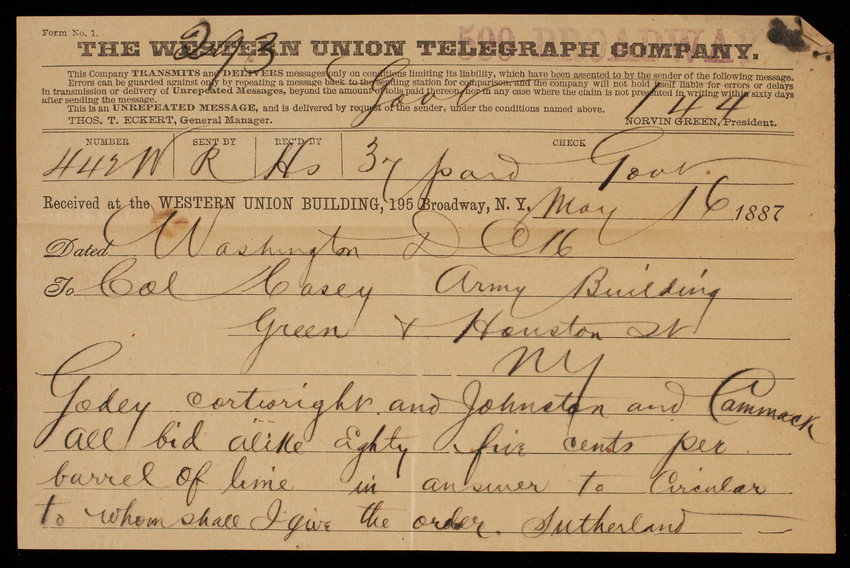 Form No. 1.
293
599 BROADWAY
THE WESTERN UNION TELEGRAPH COMPANY.
This Company TRANSMITS and DELIVERS messages only on conditions limiting its liability, which have been assented to by the sender of the following message.
Errors can be guarded against only by repeating a message back to the sending station for comparison, and the company will not hold itself liable for errors or delays
in transmission or delivery of Unrepeated Messages, beyond the amount of tolls paid thereon, nor in any case where the claim is not presented in writing within sixty days
after sending the message.
This is an UNREPEATED MESSAGE, and is delivered by request of the sender, under the conditions named above.
THOS. T. ECKERT, General Manager. NORVIN GREEN, President.
Govt 144
NUMBER SENT BY REC'D BY CHECK
442W R Hs 37 paid Govt
Received at the WESTERN UNION BUILDING, 195 Broadway, N. Y. May 16 1887
Dated Washington D C 16
To Col Casey Army Building
Green & Houston St
NY
Godey cortwright and Johnston and Cammack
all bid alike Eighty five cents per
barrel of lime in answer to Circular
to whom shall I give the order. Sutherland